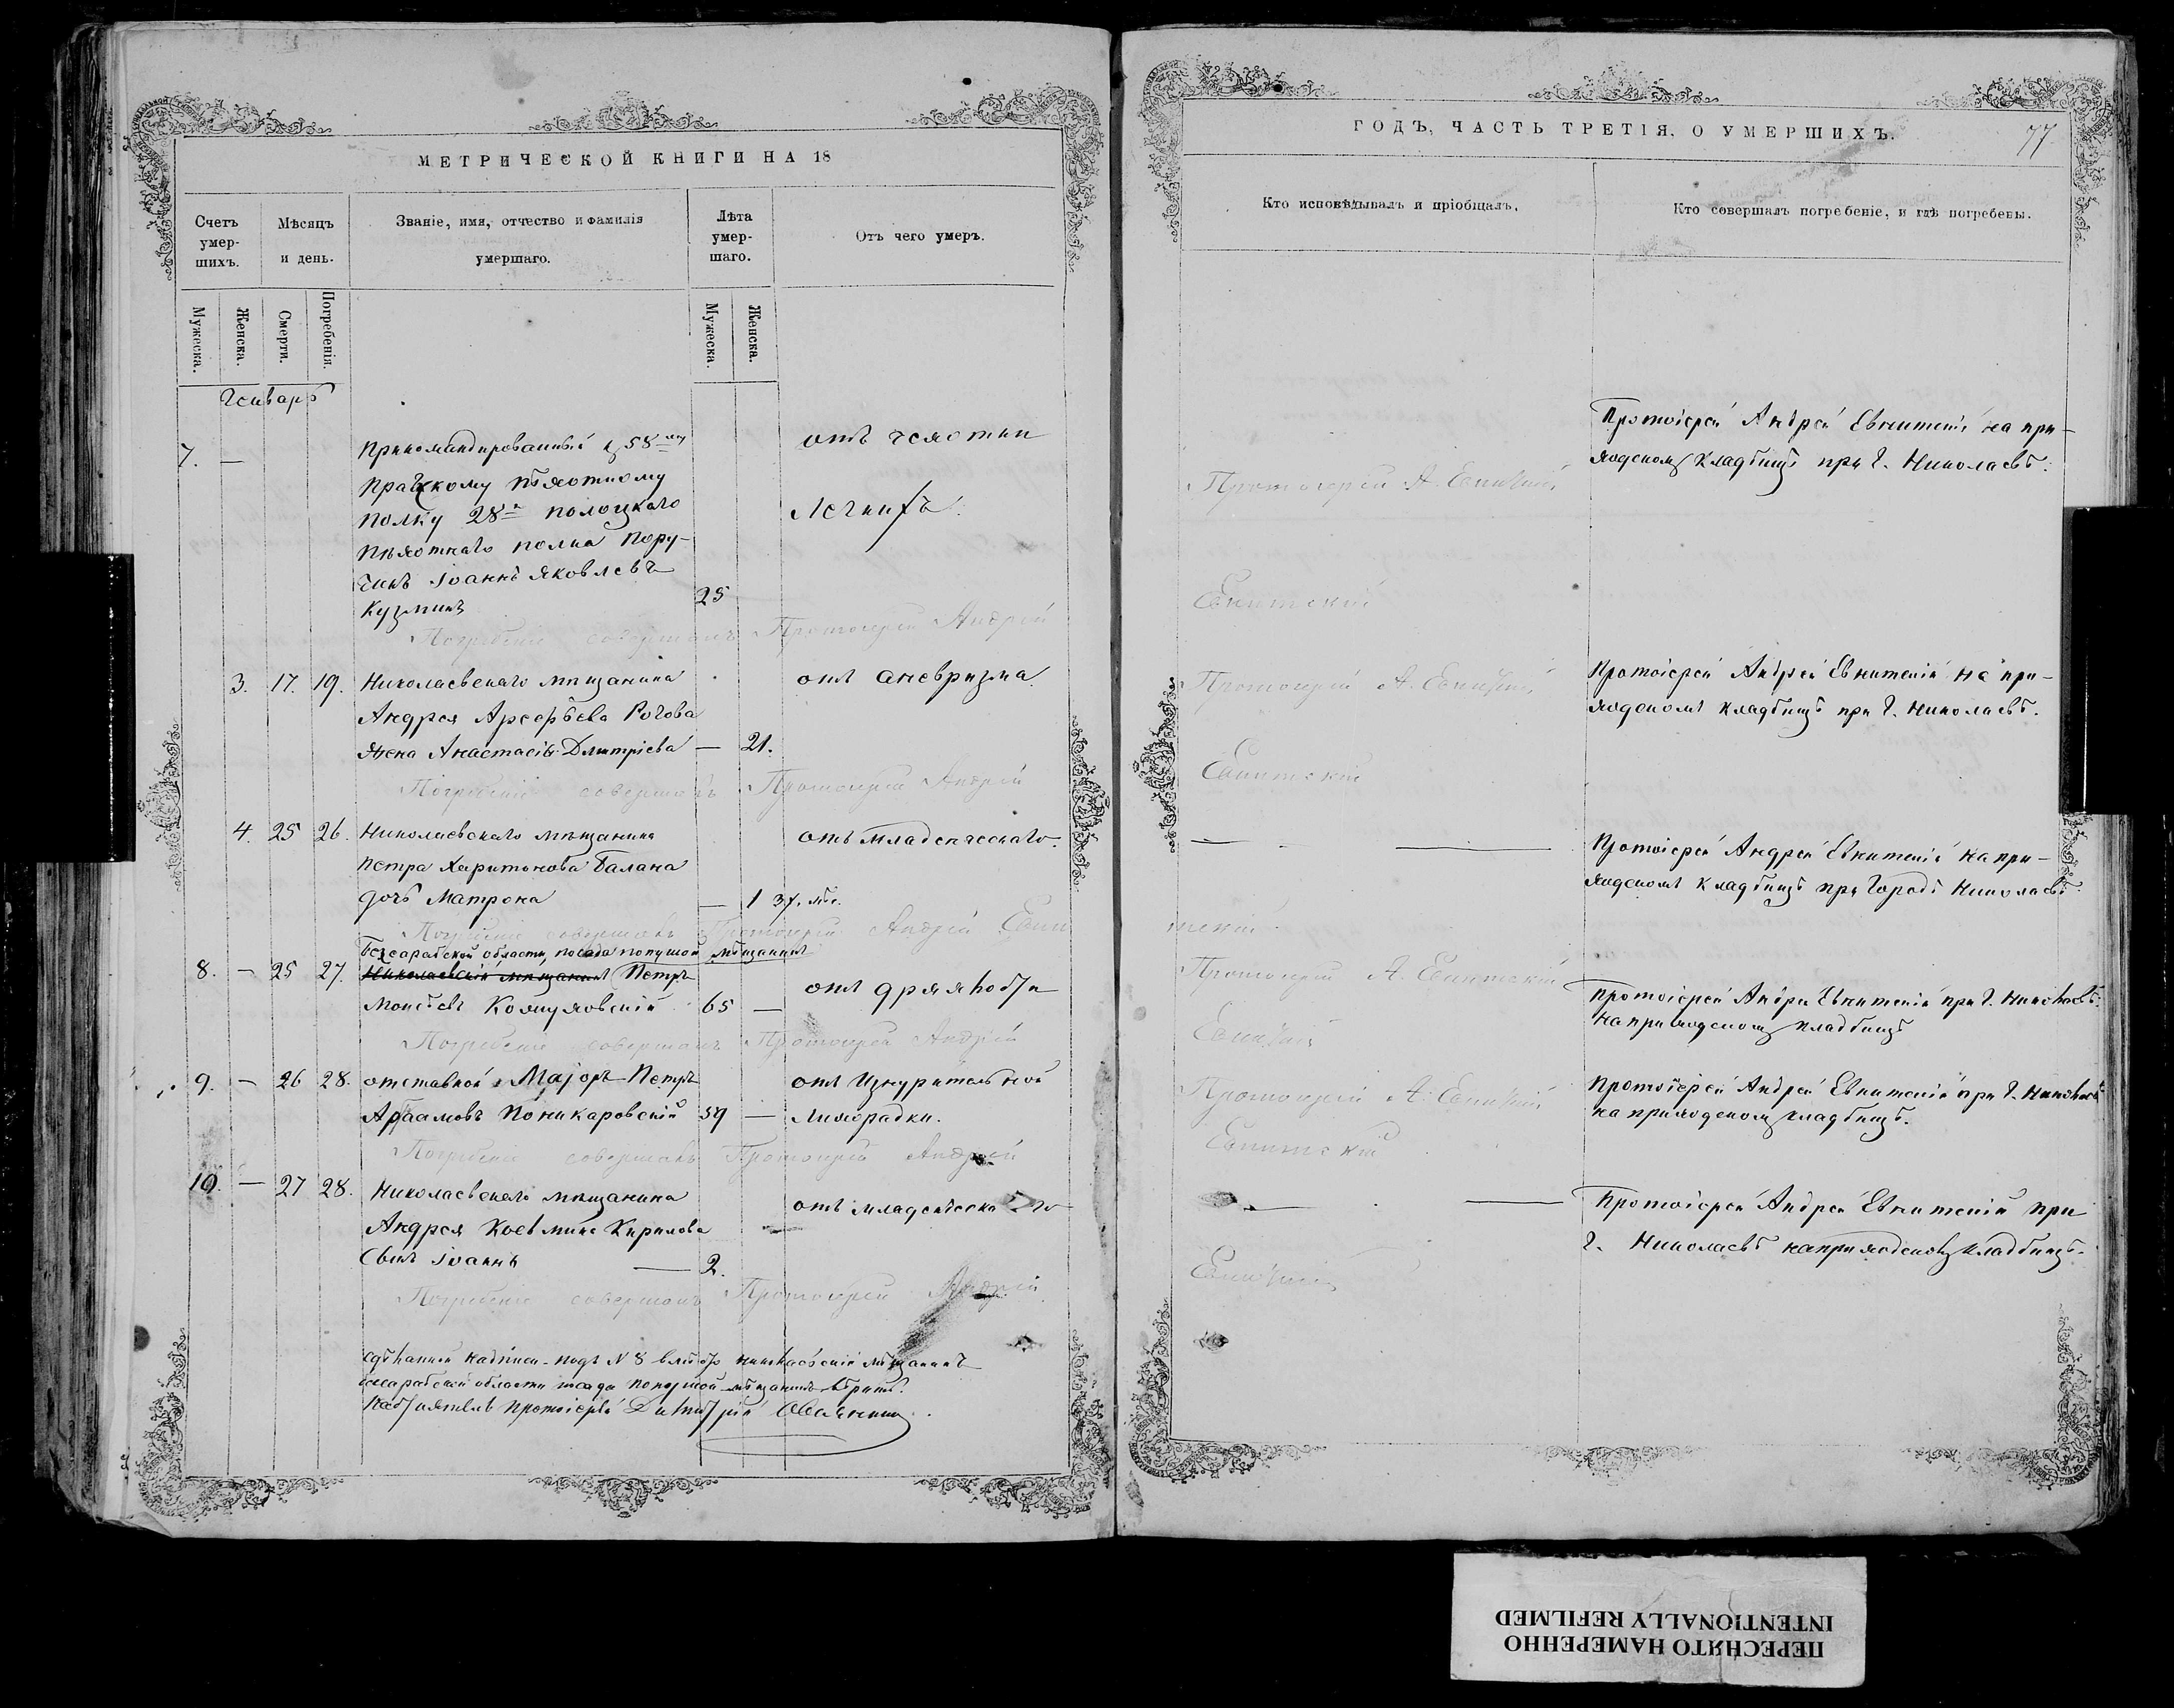 МЕТРИЧЕСКОЙ КНИГИ НА 18
Счетъ умер-шихъ.
Мѣсяцъ и день.
Званіе, имя, отчество и фамилія умершаго.
Лѣта умер-шаго.
Отъ чего умеръ.
Мужеска.
Женска.
Смерти.
Погребенія.
Мужеска.
Женска.
Генварь
7. — Прикомандированный къ 58му отъ чахотки
Пражскому пѣхотному
полку 28го полоцкаго
пѣхотнаго полка Пору-
чикъ Іоаннъ Яковлевъ
Кузминъ 25
Погребеніе совершалъ Протоіерей Андрей
3. 17. 19. Николаевскаго мѣщанина отъ аневризма
Андрея Арсерьева Рогова
жена Анастасія Дмитріева — 21.
Погребеніе совершалъ Протоіерей Андрей
4. 25 26. Николаевскаго мѣщанина отъ младенческаго.
Петра Харитонова Балана
дочь Матрона — 1
Погребеніе совершалъ Протоіерей Андрей Евни
Бессарабской области, посада попушой мѣщанинъ
8. — 25 27. Николаевскій мѣщанинъ Петръ
Моисѣевъ 65 — отъ дряхлости
Погребеніе совершалъ Протоіерей Андрей
9. — 26 28. отставной Маіоръ Петръ отъ Изнурительной
Абрамовъ Поникаровскій 59 — Лихорадки.
Погребеніе совершалъ Протоіерей Андрей
10. — 27 28. Николаевскаго мѣщанина отъ младенческаго
Андрея Косьмина Кирилова —
сынъ Іоаннъ — 2.
Погребеніе совершалъ Протоіерей Андрей
сдѣланной надписи подъ N 8 вмѣсто николаевскій мѣщанинъ
бессарабской области посада попушой мѣщанинъ вѣрить.
Протоіерей
ГОДЪ, ЧАСТЬ ТРЕТІЯ, О УМЕРШИХЪ.
77
Кто исповѣдывалъ и пріобщалъ.
Кто совершалъ погребеніе, и гдѣ погребены.
Протоіерей Андрей Евнитскій на при-
ходскомъ кладбищѣ при г. Николаевѣ.
Протоіерей А. Евницкій
Евнитскій
Протоіерей А. Евницкій
Протоіерей Андрей Евнитскій на при-
ходскомъ кладбищѣ при г. Николаевѣ.
Евнитскій
— — Протоіерей Андрей Евнитскій на при-
ходскомъ кладбищѣ при городѣ Николаевѣ
тскій
Протоіерей А. Евнитскій
Протоіерей Андрей Евнитскій при г. Николаевѣ
на приходскомъ кладбищѣ
Евницкій
Протоіерей А. Евницкій
Протоіерей Андрей Евнитскій при г. Николаевѣ
на приходскомъ кладбищѣ.
Евнитскій
— — Протоіерей Андрей Евнитскій при
г. Николаевѣ на приходскомъ кладбищѣ.
Евницкій
ПЕРЕСНЯТО НАМЕРЕННО
INTENTIONALLY REFILMED